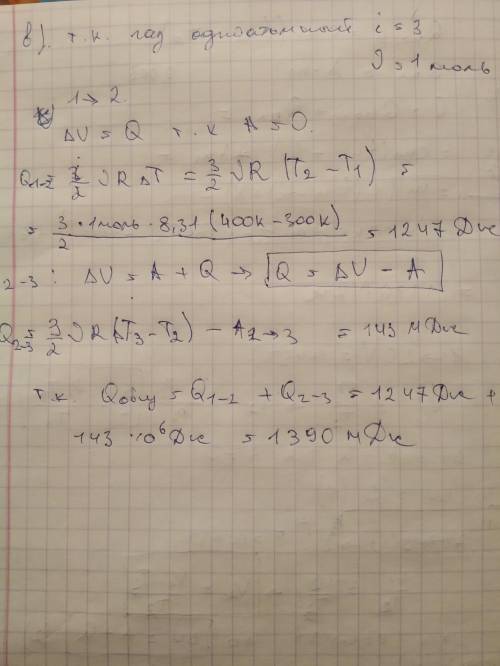 в). т.к. газ одноатомный i = 3
ν = 1 моль
1→2.
ΔU = Q т.к A = 0.
Q1-2 = 3/2 νRΔT = 3/2 νR (T2 − T1) =
= 3/2 · 1моль · 8,31 (400к − 300к) = 1247 Дж
2-3: ΔU = A + Q → Q = ΔU − A
Q2-3 = 3/2 νR(ΔT3 − T2) − A2→3 = 143 МДж
т.к. Qобщ = Q1-2 + Q2-3 = 1247 Дж +
143 · 10⁶ Дж = 1390 МДж